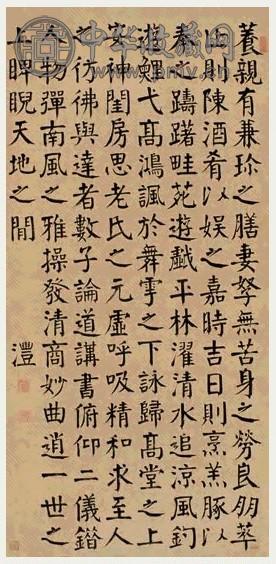 養親有兼珍之膳妻孥無苦身之勞良朋萃
止則陳酒肴以娛之嘉時吉日則烹羔豚以
奉之躊躇畦苑遊戲平林濯清水追涼風釣
遊鯉弋高鴻諷於舞雩之下詠歸高堂之上
安神閨房思老氏之元虛呼吸精和求至人
之彷彿與達者數子論道講書俯仰二儀錯
人物彈南風之雅操發清商妙曲逍一世之
上睥睨天地之間
灃
中华收藏网